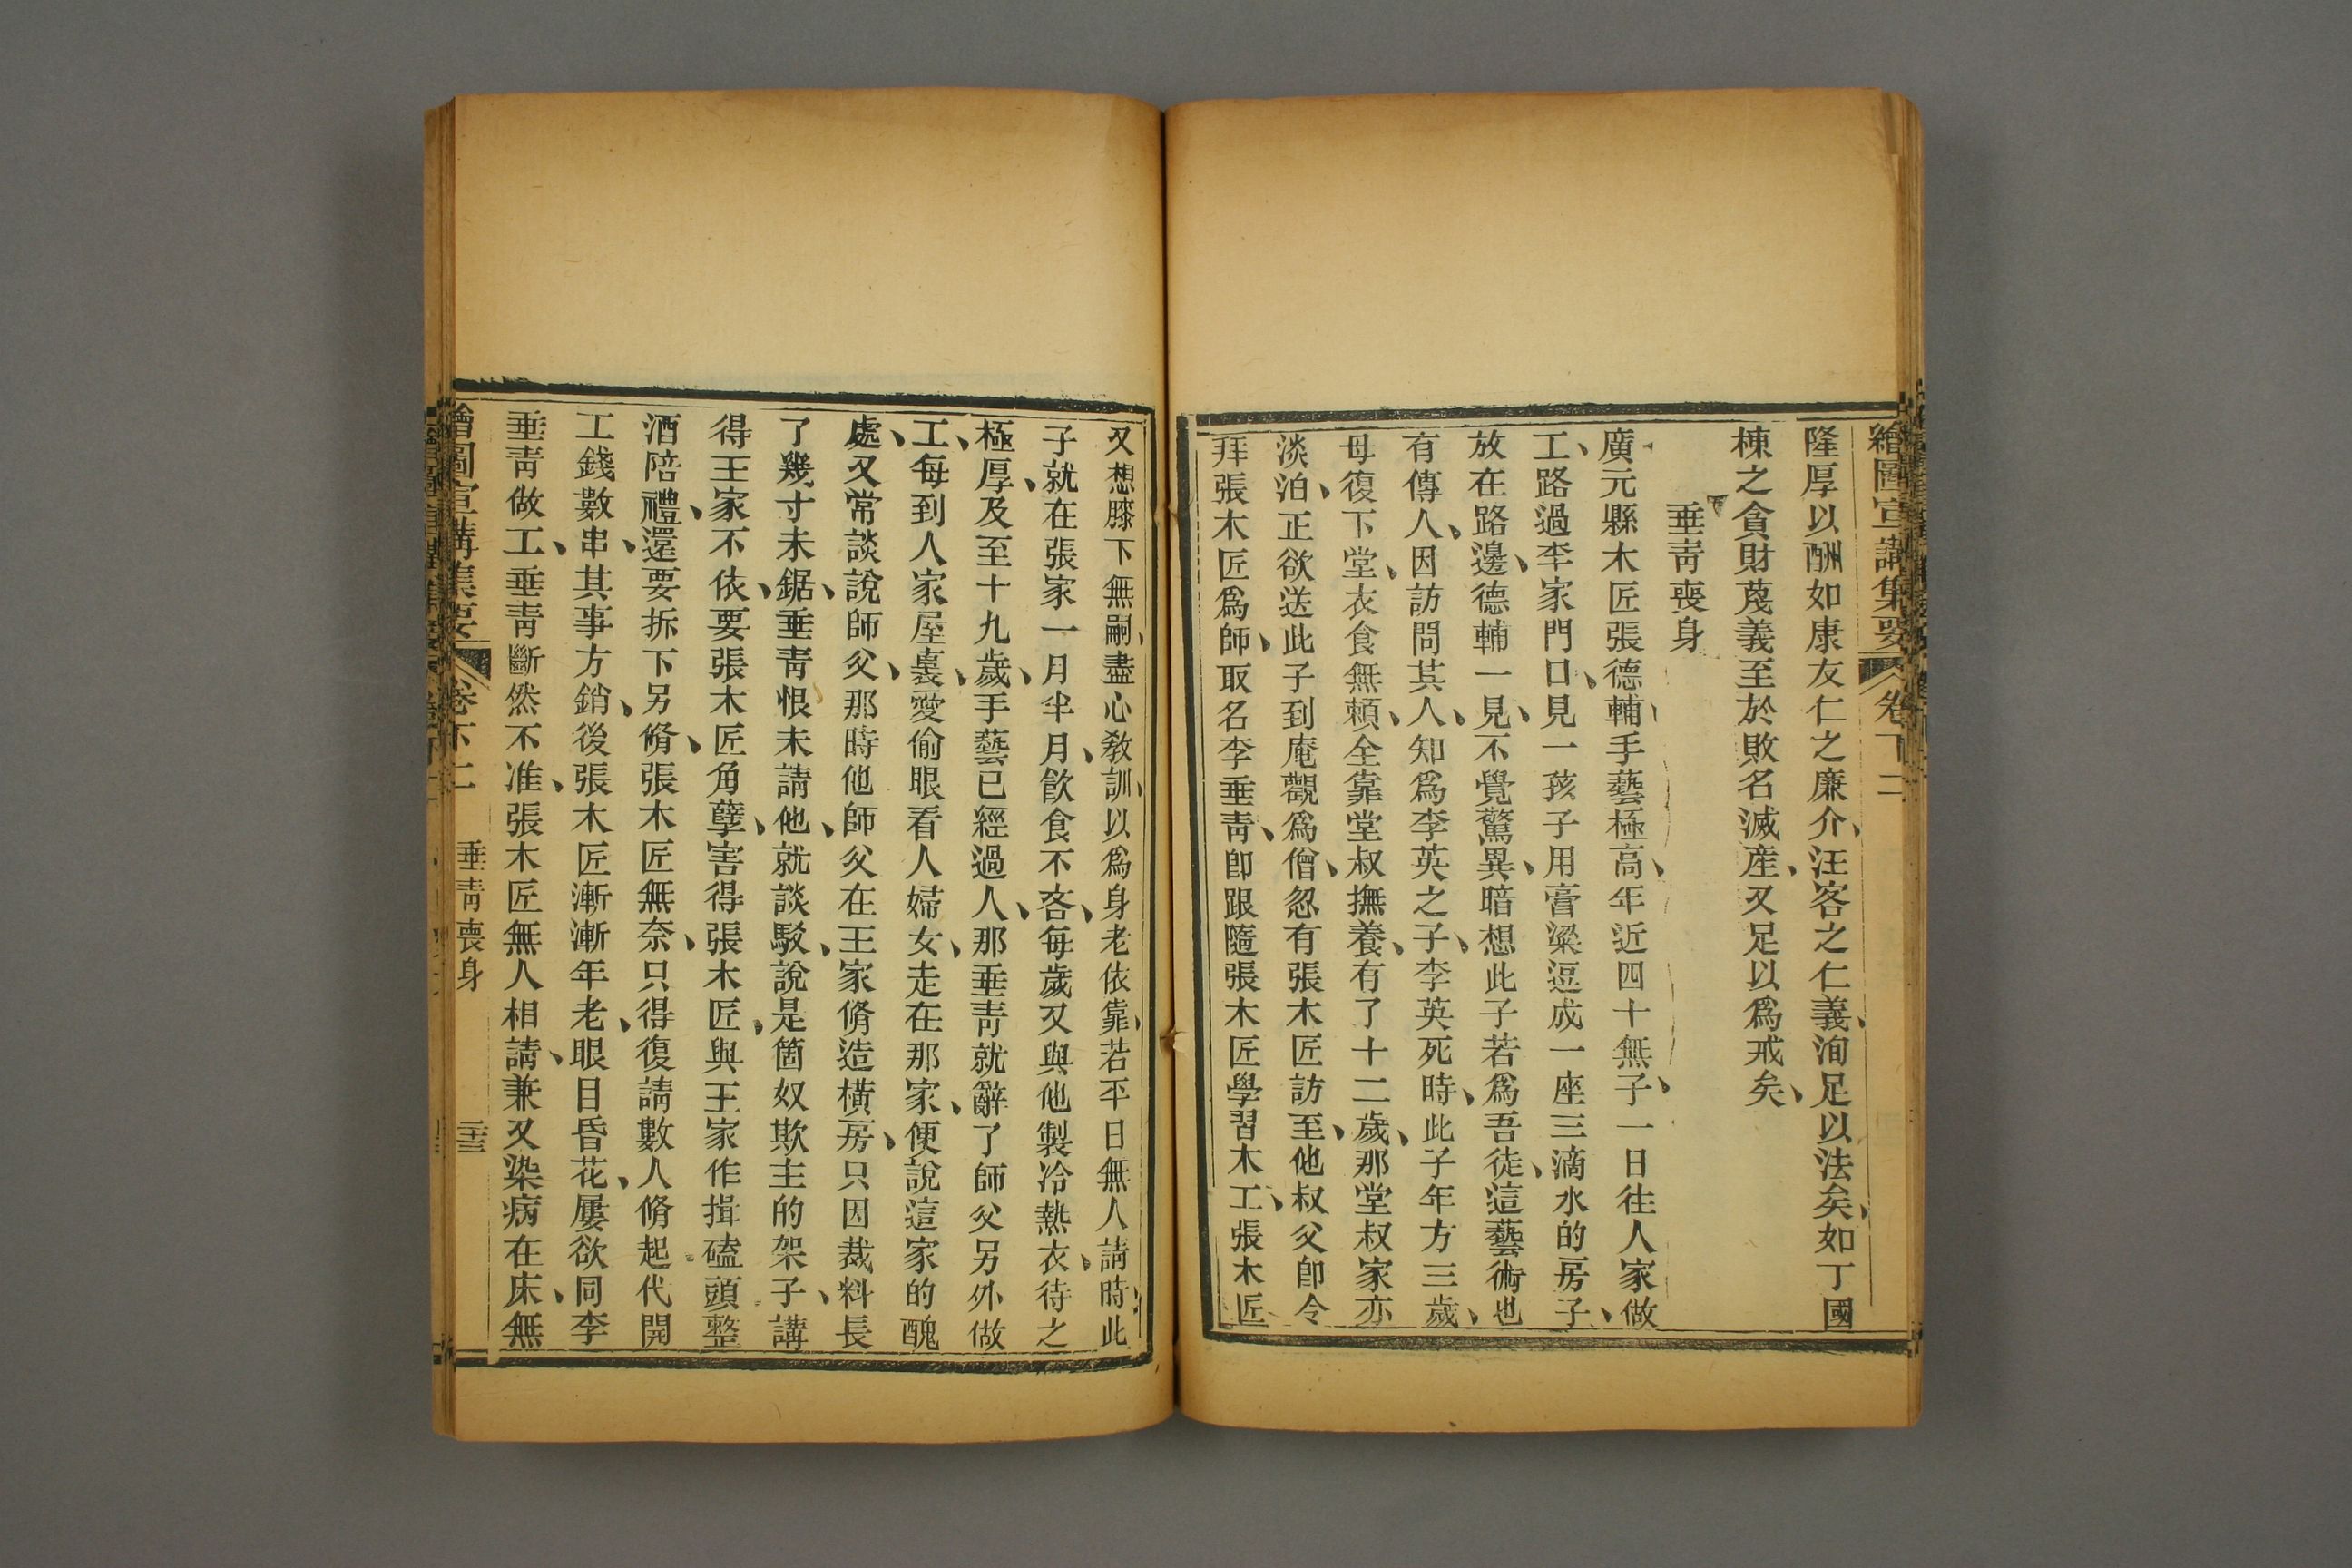 繪圖宣講集要 卷下二
隆厚以酬如康友仁之廉介、汪客之仁義、洵足以法矣、如丁國
棟之貪財蔑義至於敗名滅産、又足以爲戒矣、
垂靑喪身
廣元縣木匠張德輔、手藝極高、年近四十無子、一日往人家做
工、路過李家門口、見一孩子用膏粱逗成一座三滴水的房子、
放在路邊、德輔一見、不覺驚異、暗想此子若爲吾徒、這藝術也
有傳人、因訪問其人、知爲李英之子、李英死時、此子年方三歲、
母復下堂、衣食無賴、全靠堂叔撫養、有了十二歲、那堂叔家亦
淡泊、正欲送此子到庵觀爲僧、忽有張木匠訪至、他叔父卽令
拜張木匠爲師、取名李垂靑、卽跟隨張木匠學習木工、張木匠
又想膝下無嗣、盡心教訓、以爲身老依靠、若平日無人請時、此
子就在張家一月半月、飮食不吝、每歲又與他製冷熱衣、待之
極厚、及至十九歲、手藝已經過人、那垂靑就辭了師父另外做
工、每到人家屋裏、愛偷眼看人婦女、走在那家、便說這家的醜
處、又常談說師父、那時他師父在王家脩造橫房、只因裁料長
了幾寸未鋸、垂靑恨未請他、就談駁、說是箇奴欺主的架子、講
得王家不依、要張木匠角孽、害得張木匠、與王家作揖磕頭整
酒陪禮、還要拆下另脩、張木匠無奈、只得復請數人脩起代開
工錢數串、其事方銷、後張木匠漸漸年老、眼目昏花、屢欲同李
垂靑做工、垂靑斷然不准、張木匠無人相請、兼又染病在床、無
繪圖宣講集要 卷下二 垂靑喪身